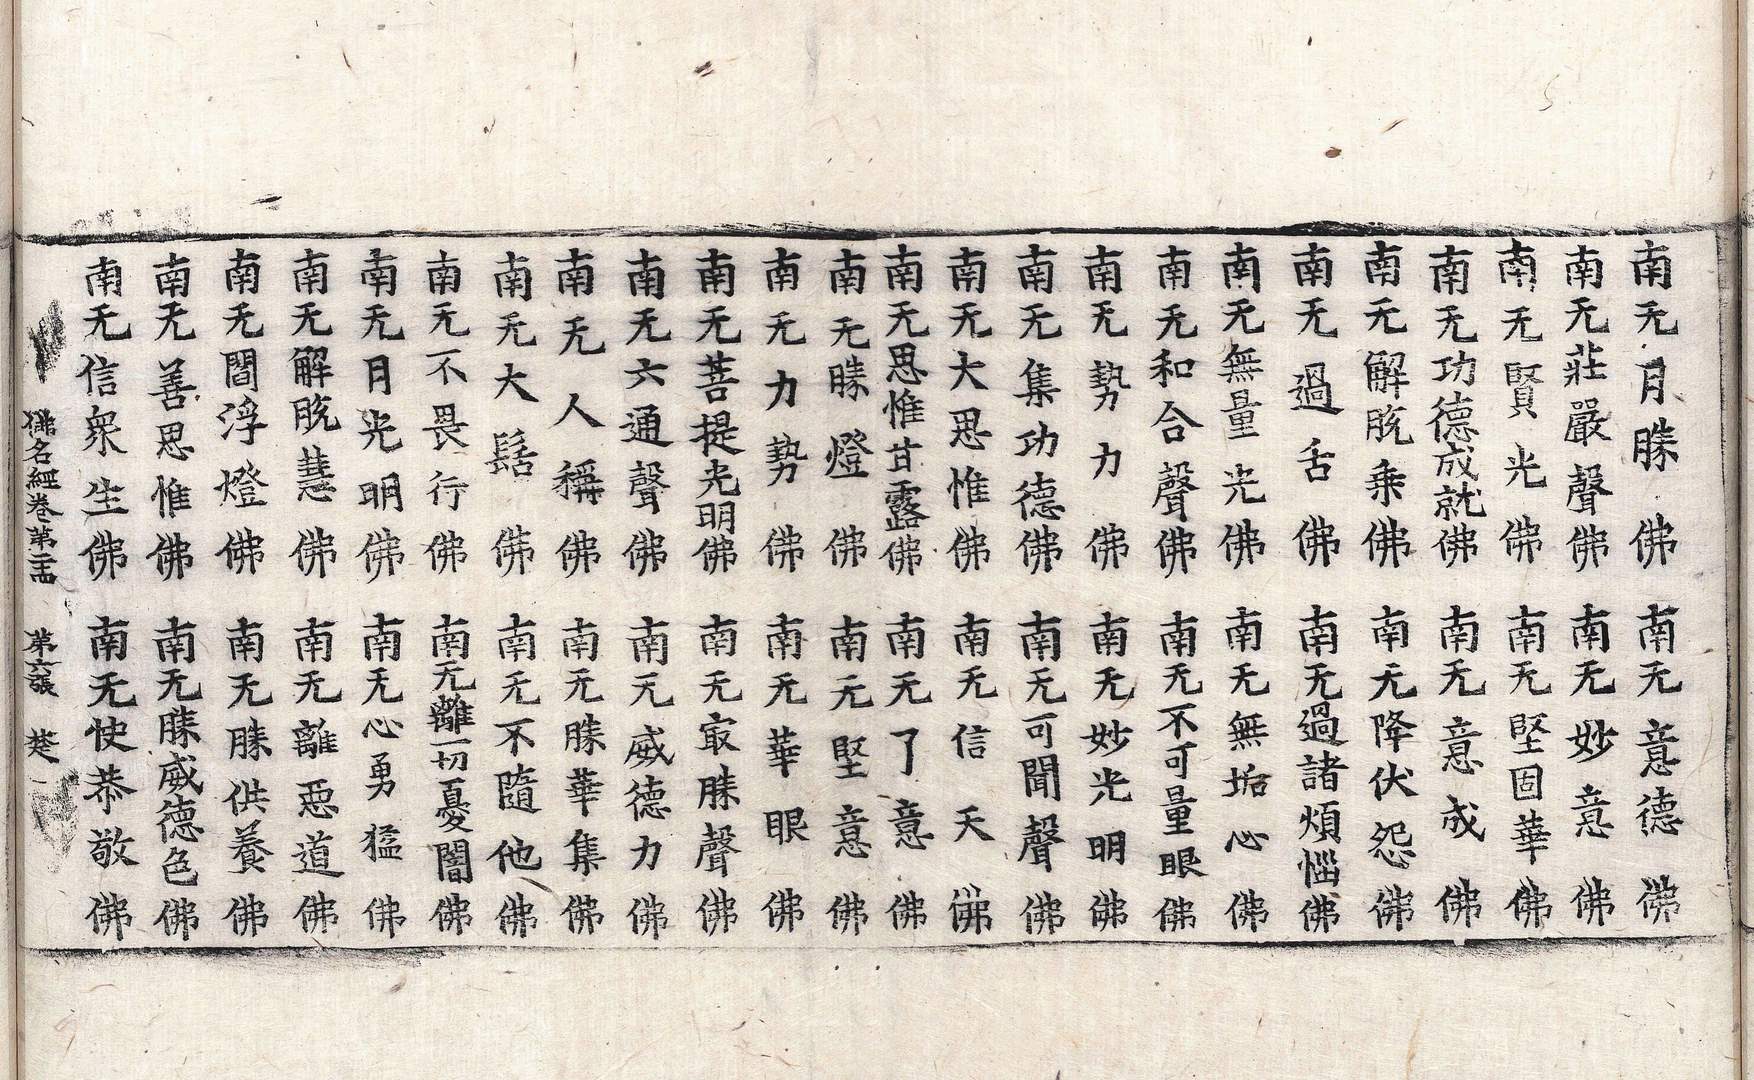 南无月勝佛 南无意德佛
南无莊嚴聲佛 南无妙意佛
南无賢光佛 南无堅固華佛
南无功德成就佛 南无意成佛
南无解脫乘佛 南无降伏怨佛
南无過舌佛 南无過諸煩惱佛
南无無量光佛 南无無垢心佛
南无和合聲佛 南无不可量眼佛
南无勢力佛 南无妙光明佛
南无集功德佛 南无可聞聲佛
南无大思惟佛 南无信天佛
南无思惟甘露佛 南无了意佛
南无勝燈佛 南无堅意佛
南无力勢佛 南无華眼佛
南无菩提光明佛 南无㝡勝聲佛
南无六通聲佛 南无威德力佛
南无人稱佛 南无勝華集佛
南无大髻佛 南无不隨他佛
南无不畏行佛 南无離一切憂闇佛
南无月光明佛 南无心勇猛佛
南无解脫慧佛 南无離惡道佛
南无閻浮燈佛 南无勝供養佛
南无善思惟佛 南无勝威德色佛
南无信衆生佛 南无快恭敬佛
佛名經卷第二 第六張 楚